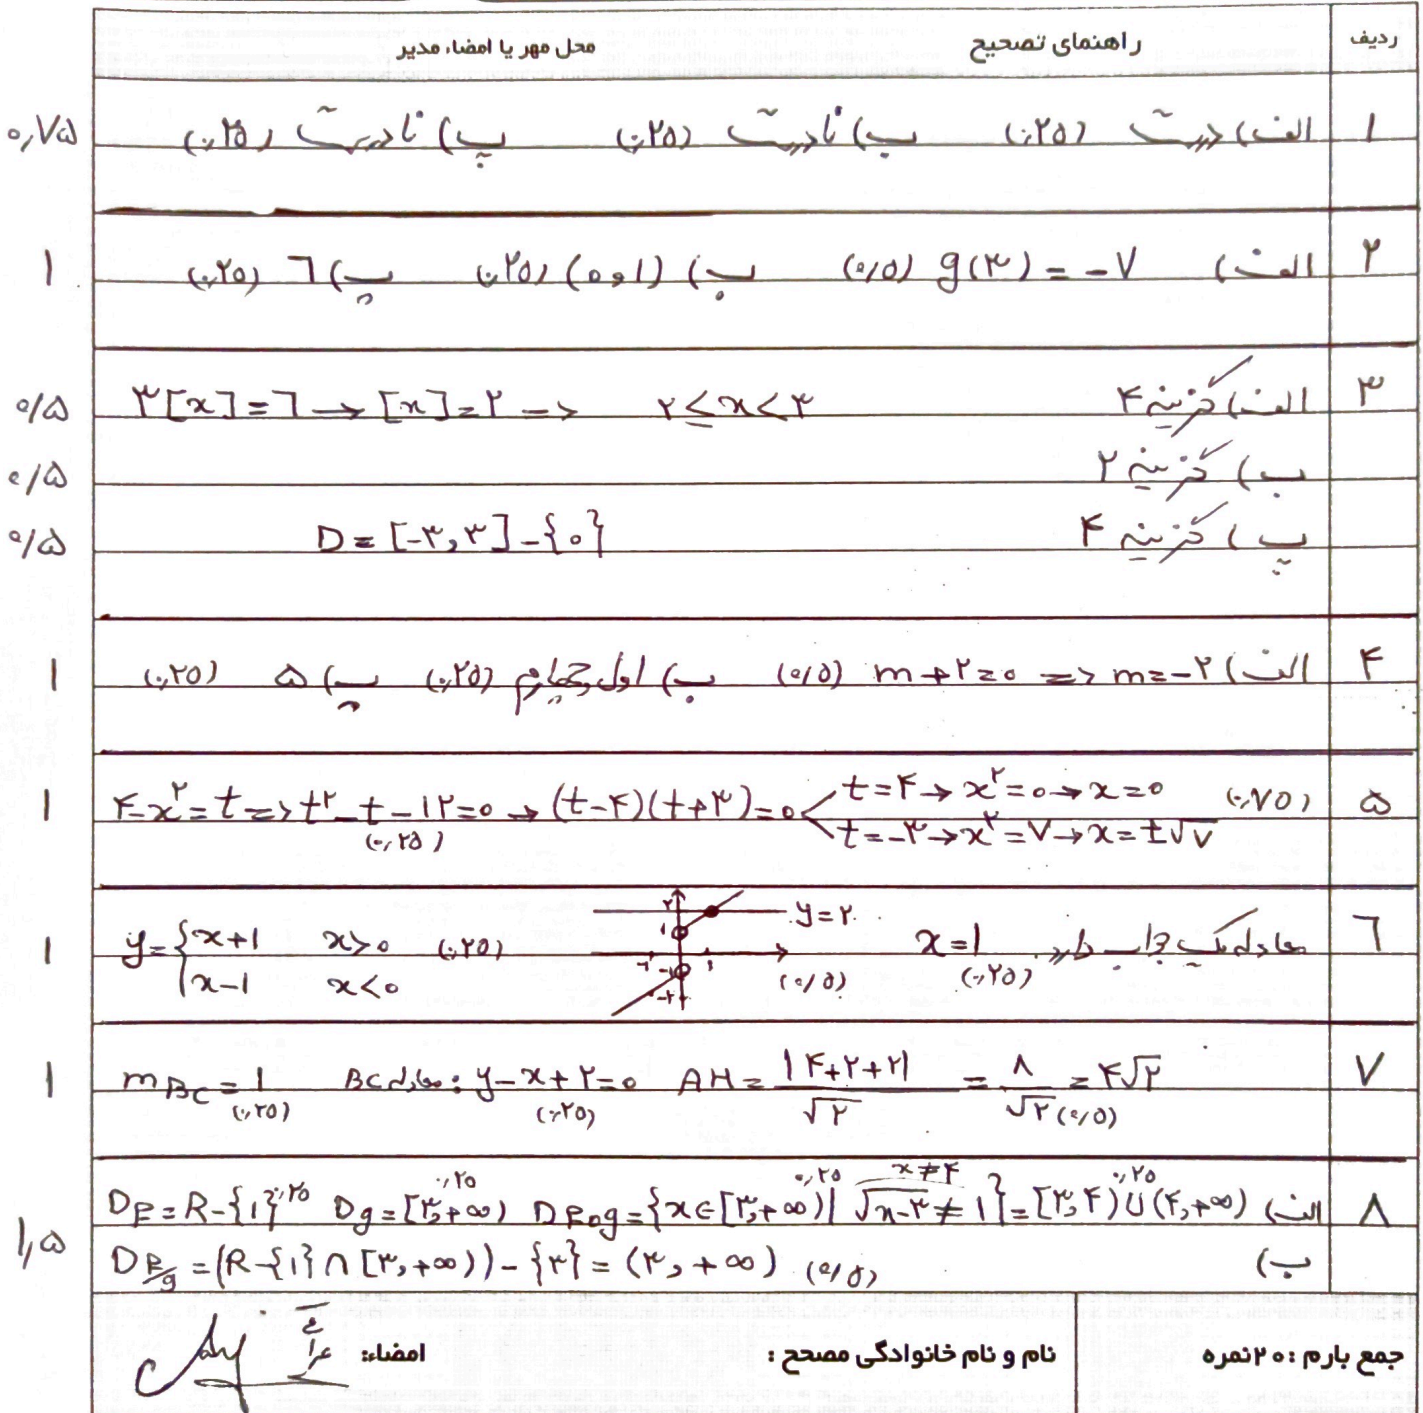 ردیف راهنمای تصحیح محل مهر یا امضاء مدیر
۱ الف) درست (۰٫۲۵) ب) نادرست (۰٫۲۵) پ) نادرست (۰٫۲۵) ۰٫۷۵
۲ الف) g(۳) = -۷ (۰/۵) ب) (۱ و ۰) (۰٫۲۵) پ) ۶ (۰٫۲۵) ۱
۳ الف) گزینه ۴ ۳[x]=۶ → [x]=۲ => ۲≤x<۳ ۰/۵
ب) گزینه ۲ ۰/۵
پ) گزینه ۴ D = [-۳,۳]-{۰} ۰/۵
۴ الف) m+۲=۰ => m=-۲ (۰/۵) ب) اول و چهارم (۰٫۲۵) پ) ۵ (۰٫۲۵) ۱
۵ ۴-x²=t => t²-t-۱۲=۰ → (t-۴)(t+۳)=۰ t=۴ → x²=۰ → x=۰ (۰٫۷۵) ۱
(۰٫۲۵) t=-۳ → x²=۷ → x=±√۷
۶ معادله یک جواب دارد x=۱ (۰٫۲۵) y=۲ (۰/۵) y={x+۱ x>۰ (۰٫۲۵) ۱
x-۱ x<۰
۷ m BC = ۱ (۰٫۲۵) معادله BC: y-x+۲=۰ (۰٫۲۵) AH = |۴+۲+۲|/√۲ = ۸/√۲ = ۴√۲ (۰/۵) ۱
۸ الف) D f = R-{۱} ۰٫۲۵ D g = [۳,+∞) ۰٫۲۵ D fog = {x∈[۳,+∞) | √x-۳ ≠ ۱} = [۳,۴)∪(۴,+∞) ۰٫۲۵ x≠۴ ۰٫۲۵ ۱٫۵
ب) D f/g = (R-{۱} ∩ [۳,+∞)) - {۳} = (۳,+∞) (۰/۵)
جمع بارم : ۲۰ نمره نام و نام خانوادگی مصحح : امضاء: